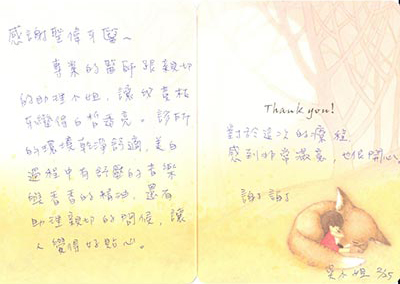 感謝聖偉牙醫~
專業的醫師跟親切
的助理小姐,讓我
變得白皙透亮。診所
的環境乾淨舒適,美白
過程中有舒壓的音樂
與香香的精油,還有
助理親切的問候,讓
人覺得好貼心。
Thank you!
對於這次的療程
感到非常滿意,也很開心。
謝謝
吳小姐 2/25